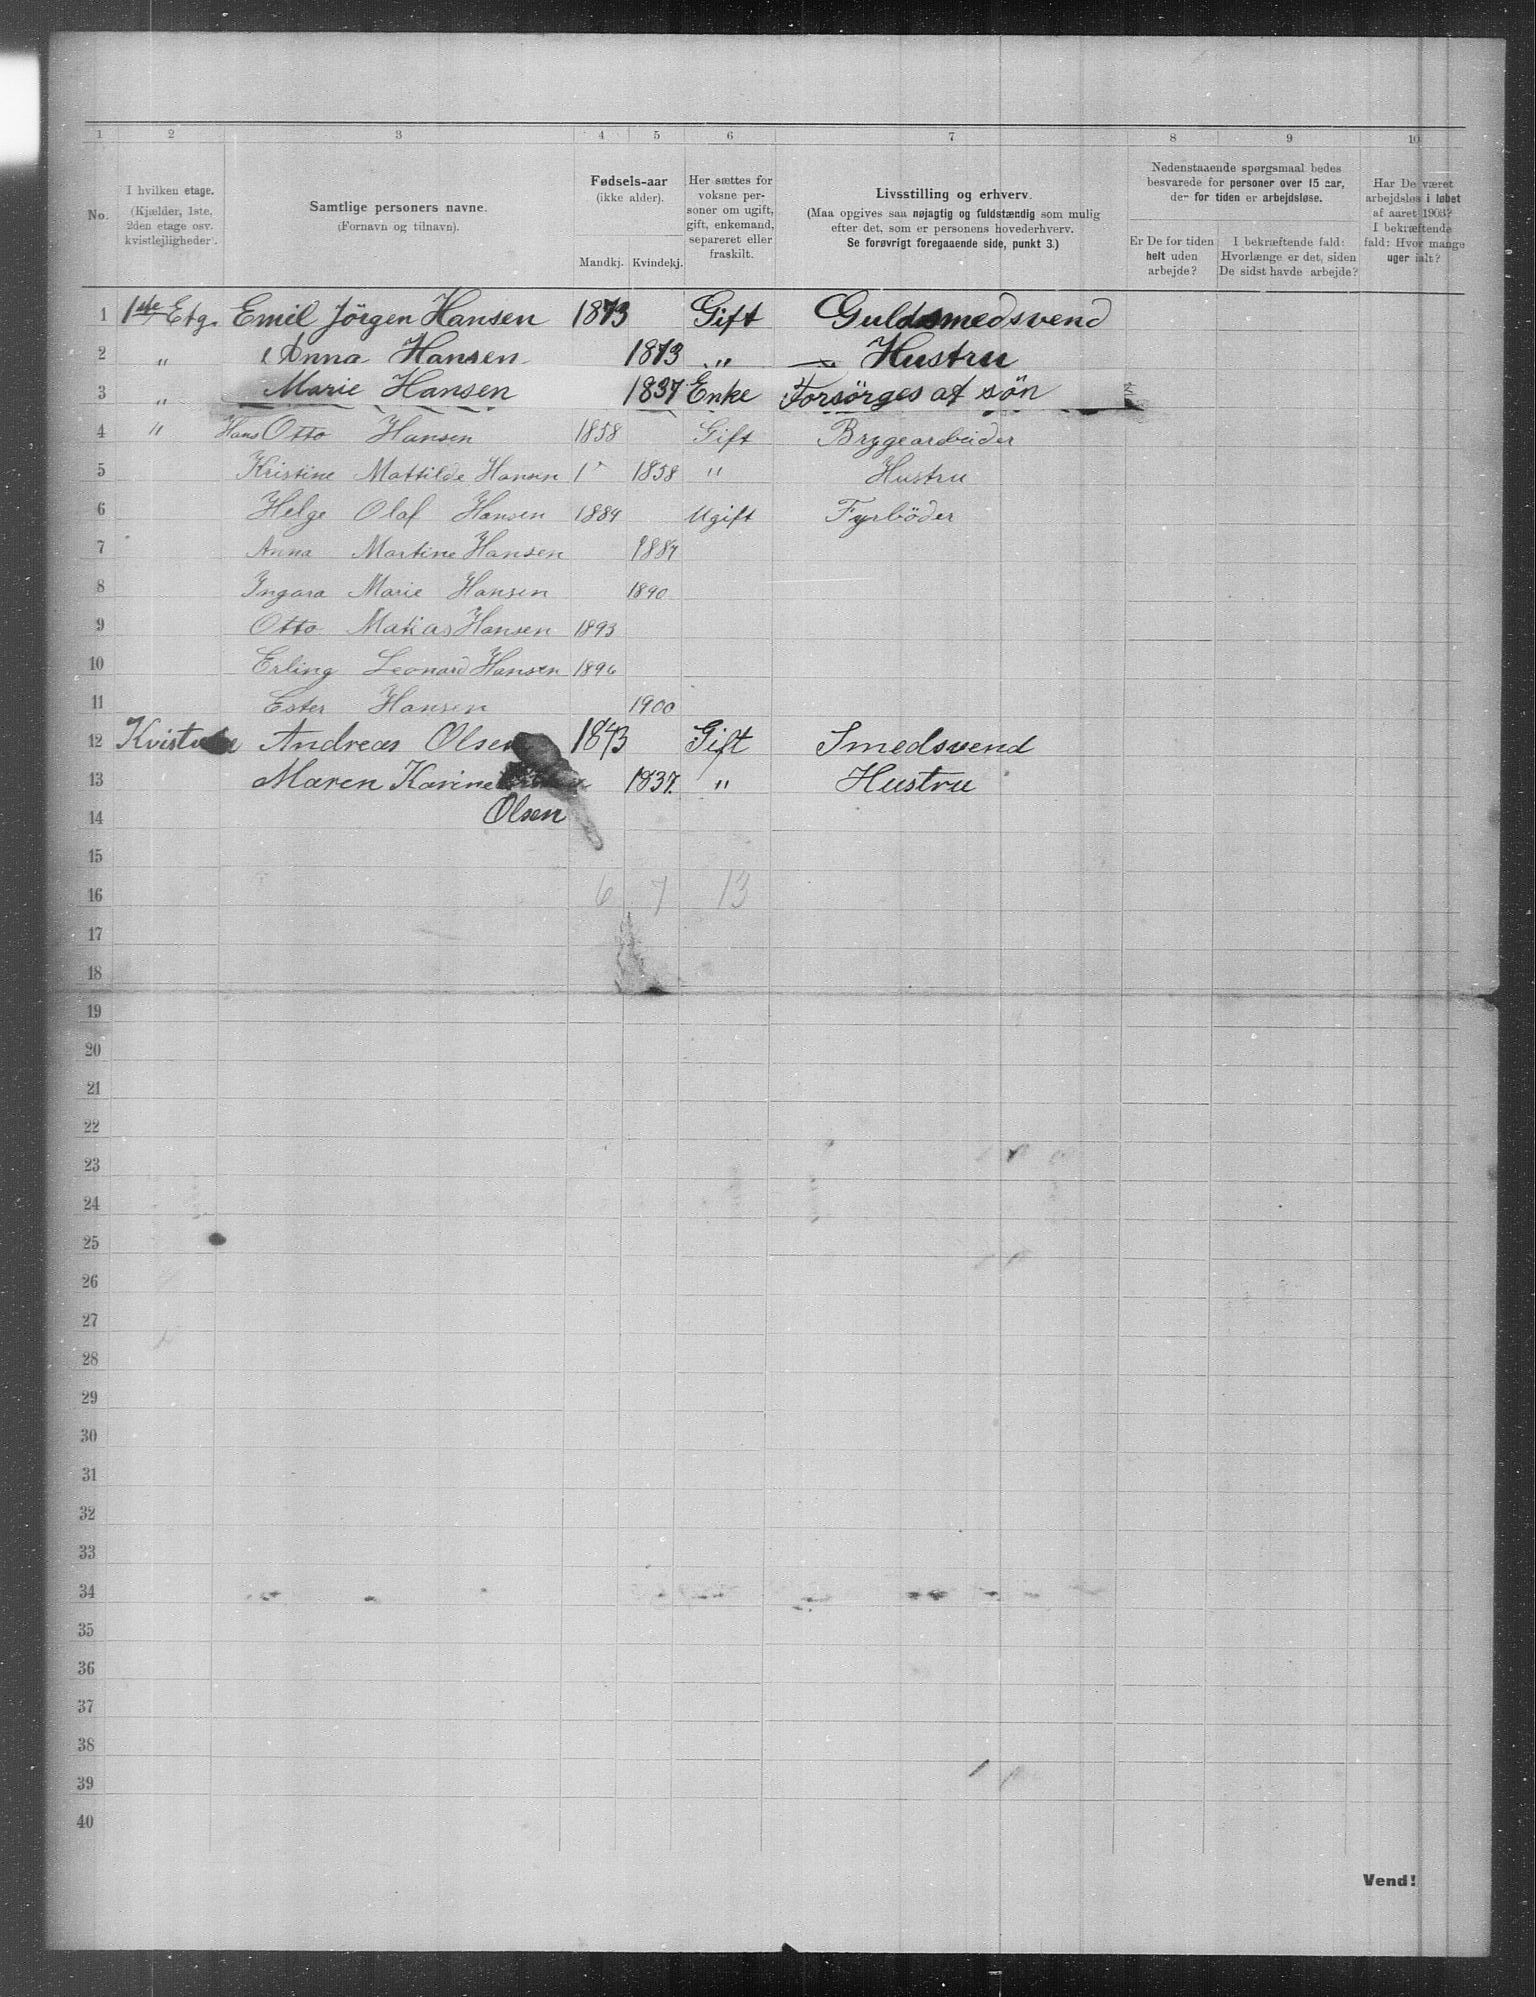 1 2 3 4 5 6 7 8 9 10
No.
I hvilken etage.
(Kjælder, 1ste,
2den etage osv.
kvistlejligheder).
Samtlige personers navne.
(Fornavn og tilnavn).
Fødsels-aar
(ikke alder).
Mandkj. Kvindekj.
Her sættes for
voksne per-
soner om ugift,
gift, enkemand,
separeret eller
fraskilt.
Livsstilling og erhverv.
(Maa opgives saa nøjagtig og fuldstændig som mulig
efter det, som er personens hovederhverv.
Se forøvrigt foregaaende side, punkt 3.)
Nedenstaaende spørgsmaal bedes
besvarede for personer over 15 aar,
der for tiden er arbejdsløse.
Er De for tiden
helt uden
arbejde?
I bekræftende fald:
Hvorlænge er det, siden
De sidst havde arbejde?
Har De været
arbejdsløs i løbet
af aaret 1903?
I bekræftende
fald: Hvor mange
uger ialt?
1 1ste Etg. Emil Jörgen Hansen 1873 Gift Guldsmedsvend
2 " Anna Hansen 1873 " Hustru
3 " Marie Hansen 1837 Enke Forsörges af sön
4 " Hans Otto Hansen 1858 Gift Bryggearbeider
5 Kristine Mattilde Hansen 1858 " Hustru
6 Helge Olaf Hansen 1884 Ugift Fyrböder
7 Anna Martine Hansen 1887
8 Ingara Marie Hansen 1890
9 Otto Matias Hansen 1893
10 Erling Leonard Hansen 1896
11 Ester Hansen 1900
12 Andreas Olsen 1843 Gift Smedsvend
13 Maren Karine 1837. " Hustru
14 Olsen
15
16 6 7 13
17
18
19
20
21
22
23
24
25
26
27
28
29
30
31
32
33
34
35
36
37
38
39
40
Vend!